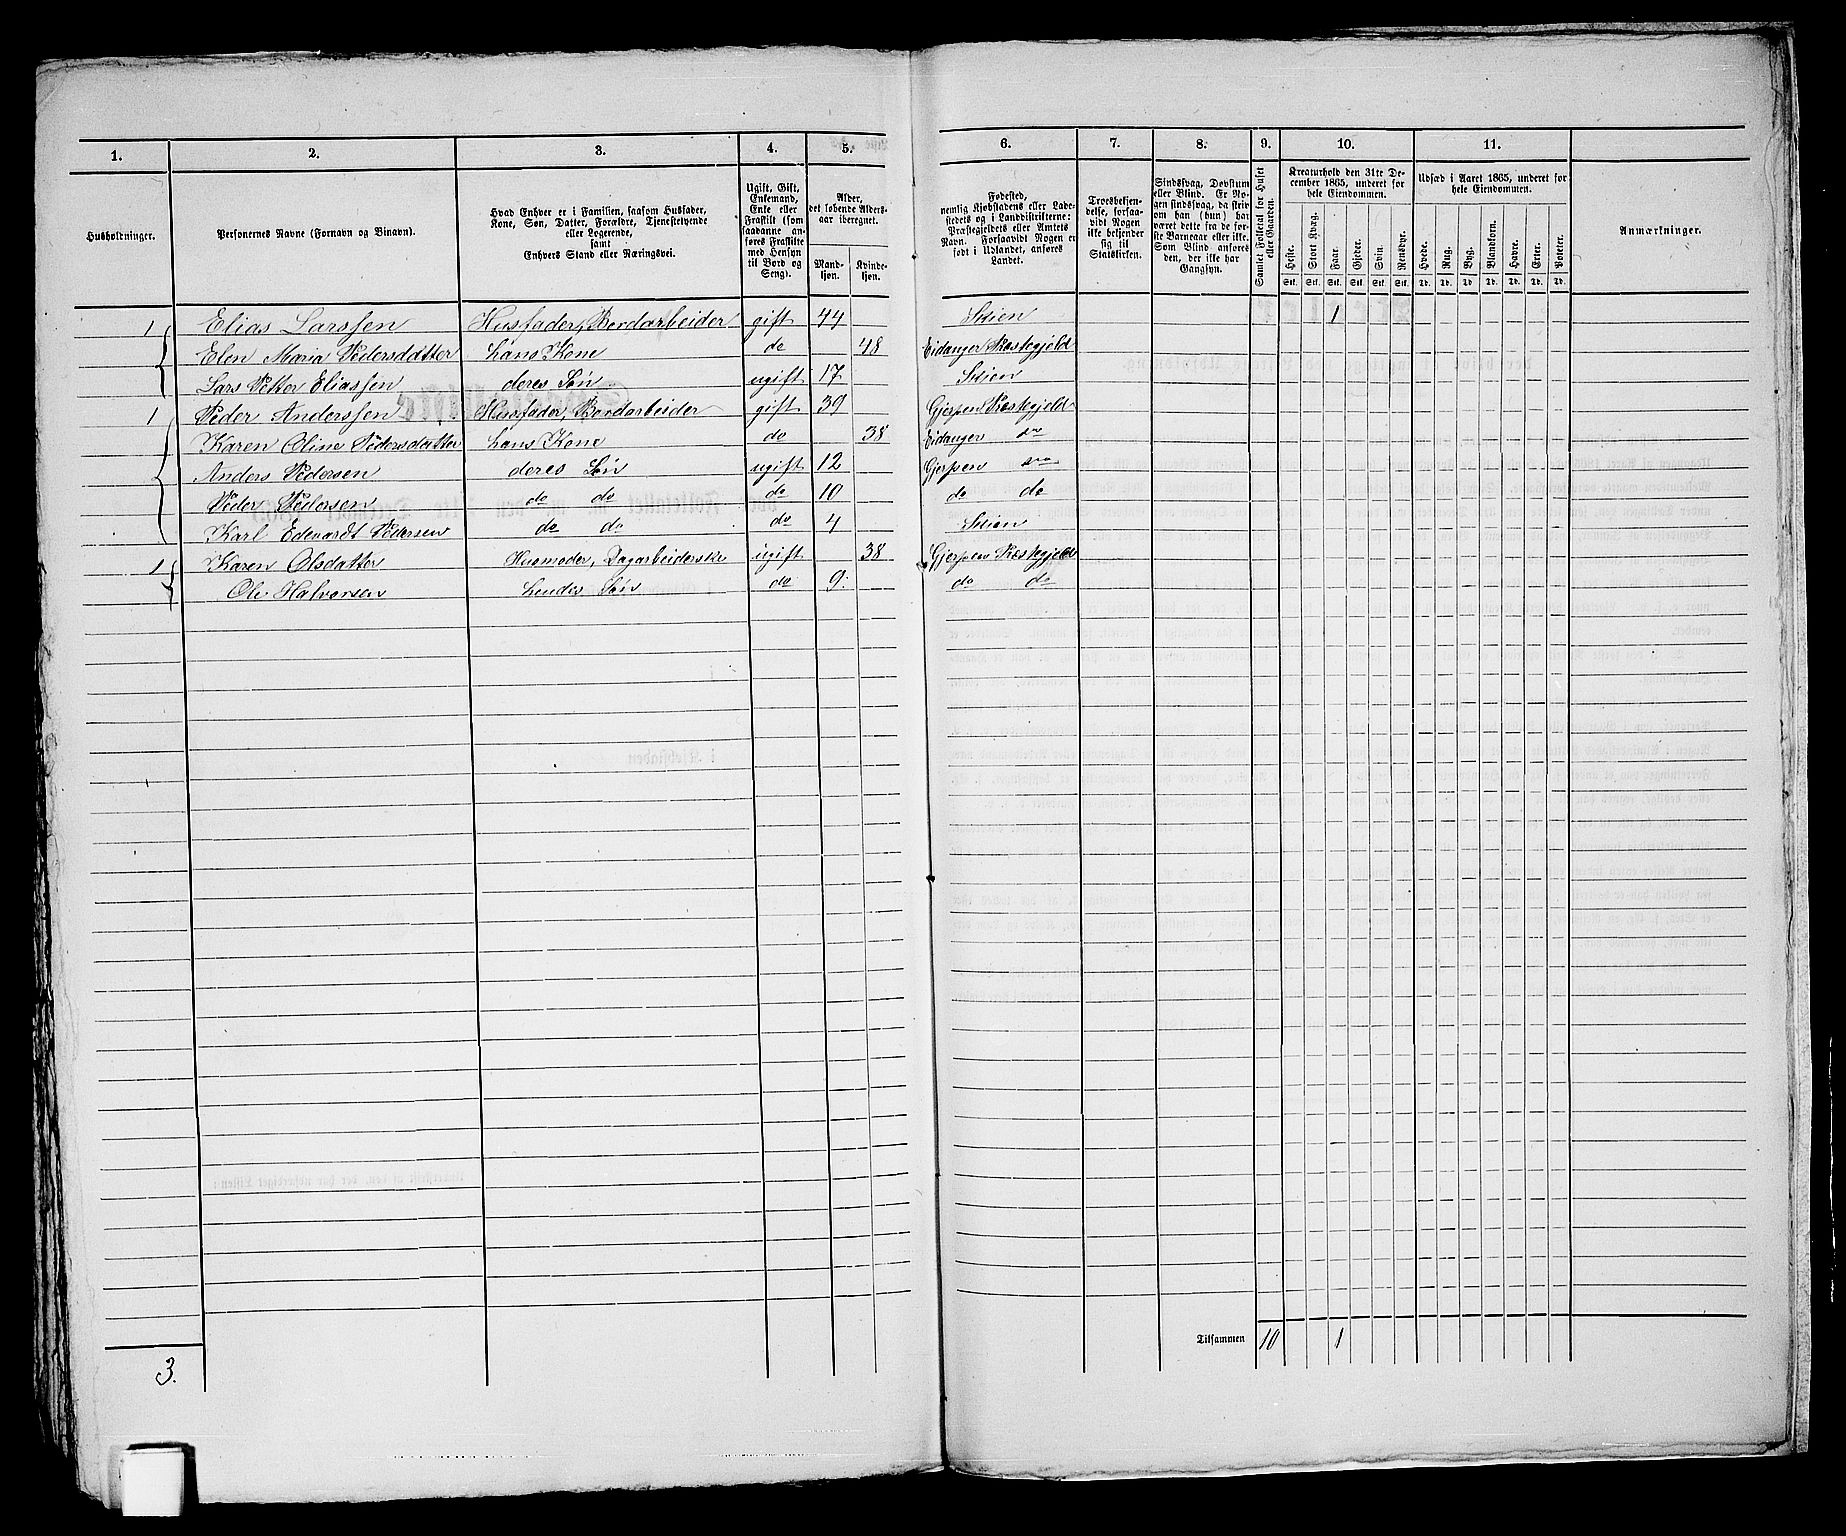 1. 2. 3. 4. 5. 6. 7. 8. 9. 10. 11.
Husholdninger.
Personernes Navne (Fornavn og Binavn).
Hvad Enhver er i Familien, saasom Husfader,
Kone, Søn, Datter, Forældre, Tjenestetyende
eller Logerende,
samt
Enhvers Stand eller Næringsvei.
Ugift, Gift,
Enkemand,
Enke eller
Fraskilt (som
saadanne an-
føres Fraskilte
med Hensyn
til Bord og
Seng).
Alder,
det løbende Alders-
aar iberegnet.
Mand-
kjøn.
Kvinde-
kjøn.
Fødested,
nemlig Kjøbstadens eller Lade-
stedets og i Landdistrikterne:
Præstegjeldets eller Amtets
Navn. Forsaavidt Nogen er
født i Udlandet, anføres
Landet.
Troesbekjen-
delse, forsaa-
vidt Nogen
ikke bekjender
sig til
Statskirken.
Sindssvag, Døvstum
eller Blind. Er No-
gen sindssvag, da skriv
om han (hun) har
været dette fra de før-
ste Barneaar eller ikke.
Som Blind anføres
den, der ikke har
Gangsyn.
Samlet Folketal for Huset
eller Gaarden.
Kreaturhold den 31te De-
cember 1865, underet for
hele Eiendommen.
Heste. Stort Kvæg. Faar. Gjeder. Svin. Rensdyr.
Stk. Stk. Stk. Stk. Stk. Stk.
Udsæd i Aaret 1865, underet for
hele Eiendommen.
Hvede. Rug. Byg. Blandkorn. Havre. Erter. Poteter.
Td. Td. Td. Td. Td. Td. Td.
Anmærkninger.
1 Elias Larssen Husfader, Bordarbeider gift 44 Skien 1
Elen Maria Pedersdatter hans Kone do 48 Eidanger Præstegjeld
Lars Petter Eliassen deres Søn ugift 17 Skien
1 Peder Anderssen Husfader, Bordarbeider gift 39 Gjerpen Præstegjeld
Karen Oline Pedersdatter hans Kone do 38 Eidanger do
Anders Pedersen deres Søn ugift 12 Gjerpen do
Peder Pedersen do do do 10 do do
Karl Edevardt Pedersen do do do 4 Skien
1 Karen Olsdatter Husmoder, Dagarbeiderske ugift 38 Gjerpen Præstegjeld
Ole Halvorsen hendes Søn do 9 do do
Tilsammen 10 1
3.